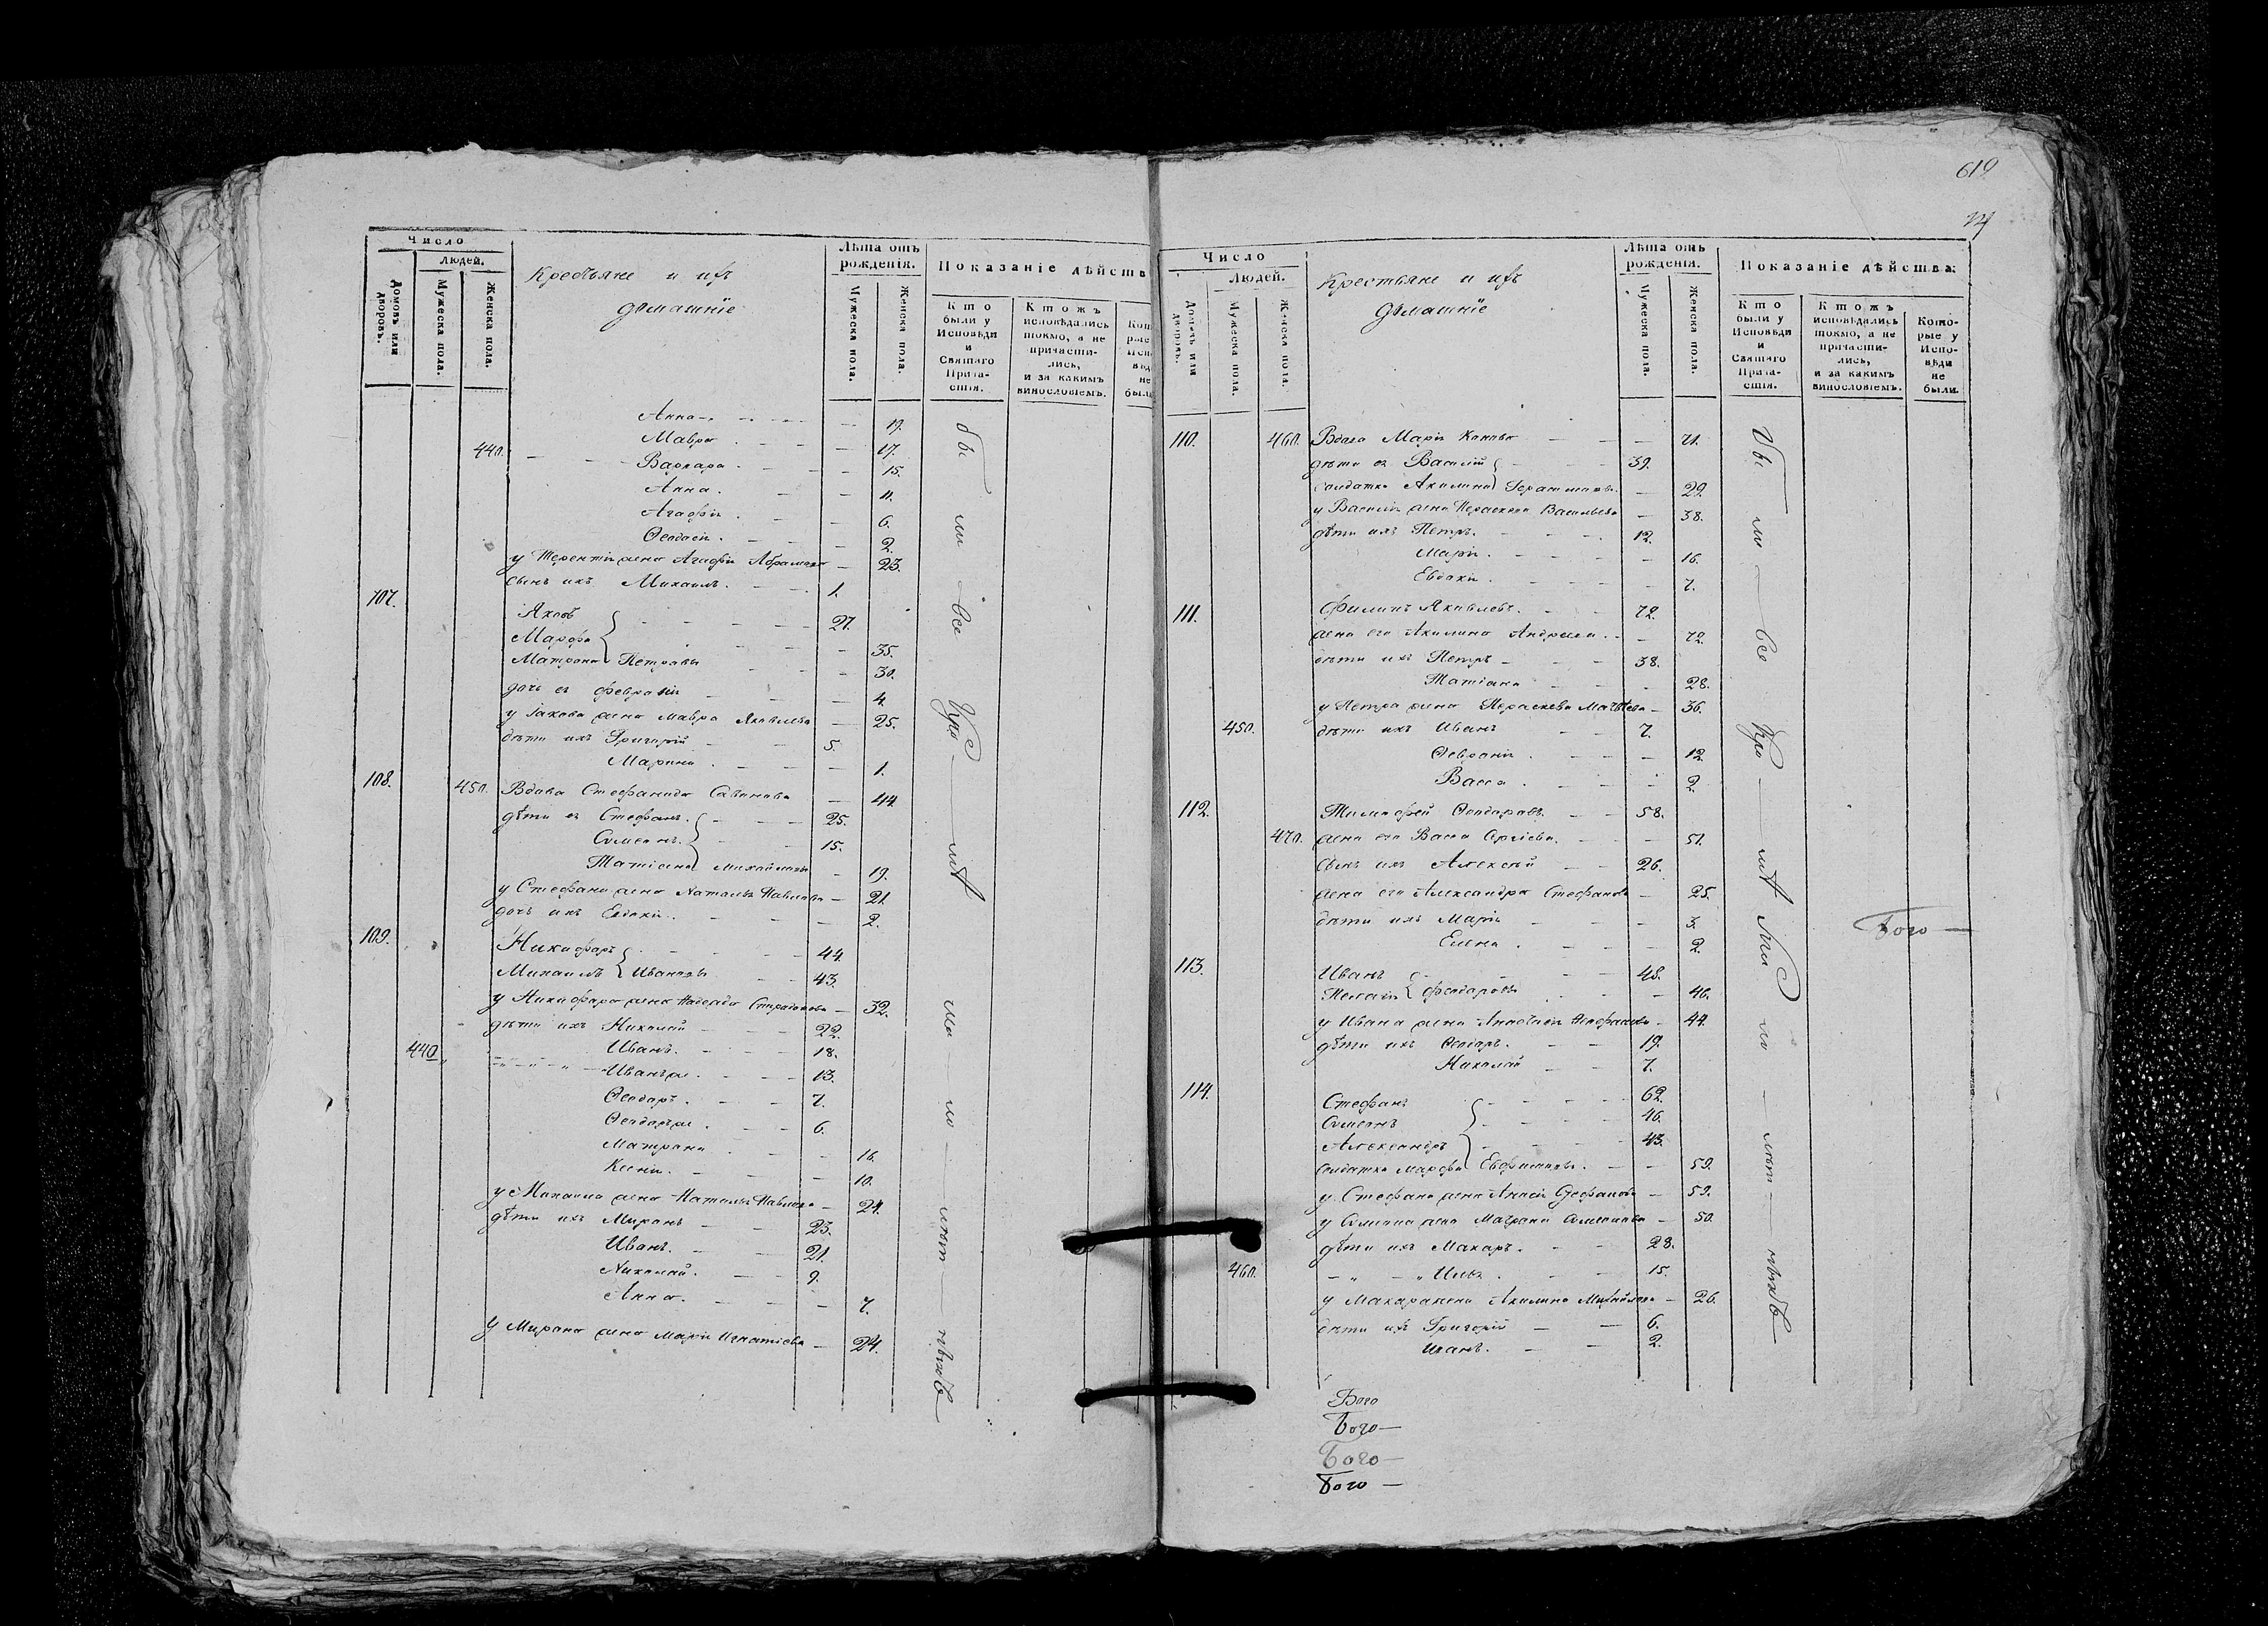 Число
Людей.
Домовъ или дворовъ.
Мужеска пола.
Женска пола.
Крестьяне и ихъ
домашніе
Лѣта отъ рожденія.
Мужеска пола.
Женска пола.
Показаніе дѣйства
Кто были у Исповѣди и Святаго Причастія.
Ктожъ исповѣдались токмо, а не причастились, и за какимъ винословіемъ.
Анна 19.
Мавра 17.
440. Варвара 15.
Анна. 11.
Агафія 6.
Ѳеодосія 2.
у Терентія жена Агафія Абрамова 23.
сынъ ихъ Михаилъ. 1.
107. Яковъ 27.
Марфа 35.
Матрона Петровы 30.
дочь ея Февронія 4.
у Іакова жена Мавра Яковлева 25.
дѣти ихъ Григорій 5.
Марина 1.
108. 450. Вдова Стефанида Савинова 44
дѣти ея Стефанъ. 25.
Симеонъ. 15.
Татіана Михайловы 19.
у Стефана жена Наталья Павлова 21.
дочь ихъ Евдокія. 2.
109. Никифоръ 44.
Михаилъ Ивановы 43.
у Никифора жена Надежда 32.
дѣти ихъ Николай 22.
440 Иванъ. 18.
Иванъ же 13.
Ѳеодоръ. 7.
Ѳеодоръ же 6.
Матрона 16.
Ксенія. 10.
у Михаила жена Наталья Павлова 24.
дѣти ихъ Миронъ 23.
Иванъ. 21.
Николай. 9.
Анна. 7.
у Мирона жена Марія Игнатіева 24.
бы ли все
619
Число
Людей.
Домовъ или дворовъ.
Мужеска пола.
Женска пола.
Крестьяне и ихъ
домашніе
Лѣта отъ рожденія.
Мужеска пола.
Женска пола.
Показаніе дѣйства.
Кто были у Исповѣди и Святаго Причастія.
Ктожъ исповѣдались токмо, а не причастились, и за какимъ винословіемъ.
Которые у Исповѣди не были.
110. 460. Вдова Марія 71.
дѣти ея Василій 39.
солдатка Акилина Герасимовы 29.
у Василія жена Параскева Васильева 38.
дѣти ихъ Петръ. 12.
Марія. 16.
Евдокія. 7.
111. Филипъ Яковлевъ. 72.
жена его Акилина Андреева 72.
дѣти ихъ Петръ 38.
Татіана 28.
у Петра жена Параскева Матвѣева 36.
450. дѣти ихъ Иванъ 7.
Ѳевронія 12.
Васса 2.
112. Тимофей Ѳеодоровъ 58.
470. жена его Васса Сергіева. 51.
сынъ ихъ Алексѣй 26.
жена его Александра Стефанова 25.
дѣти ихъ Марія 3.
Елена 2.
113. Иванъ 48.
Пелагія Ѳеодоровы 46.
у Ивана жена Анастасія 44.
дѣти ихъ Ѳеодоръ. 19.
Николай 7.
114. Стефанъ 62.
Симеонъ 46.
Александръ 43.
солдатка Марфа Евфимовы 59.
у Стефана жена Анисія 59.
у Симеона жена Матрона Симеонова 50.
дѣти ихъ Макаръ. 28.
460. Илья 15.
у Макара жена Акилина Михайлова 26.
дѣти ихъ Григорій 6.
Иванъ. 2.
бы ли все
Бого
Бого
Бого
Бого
Бого